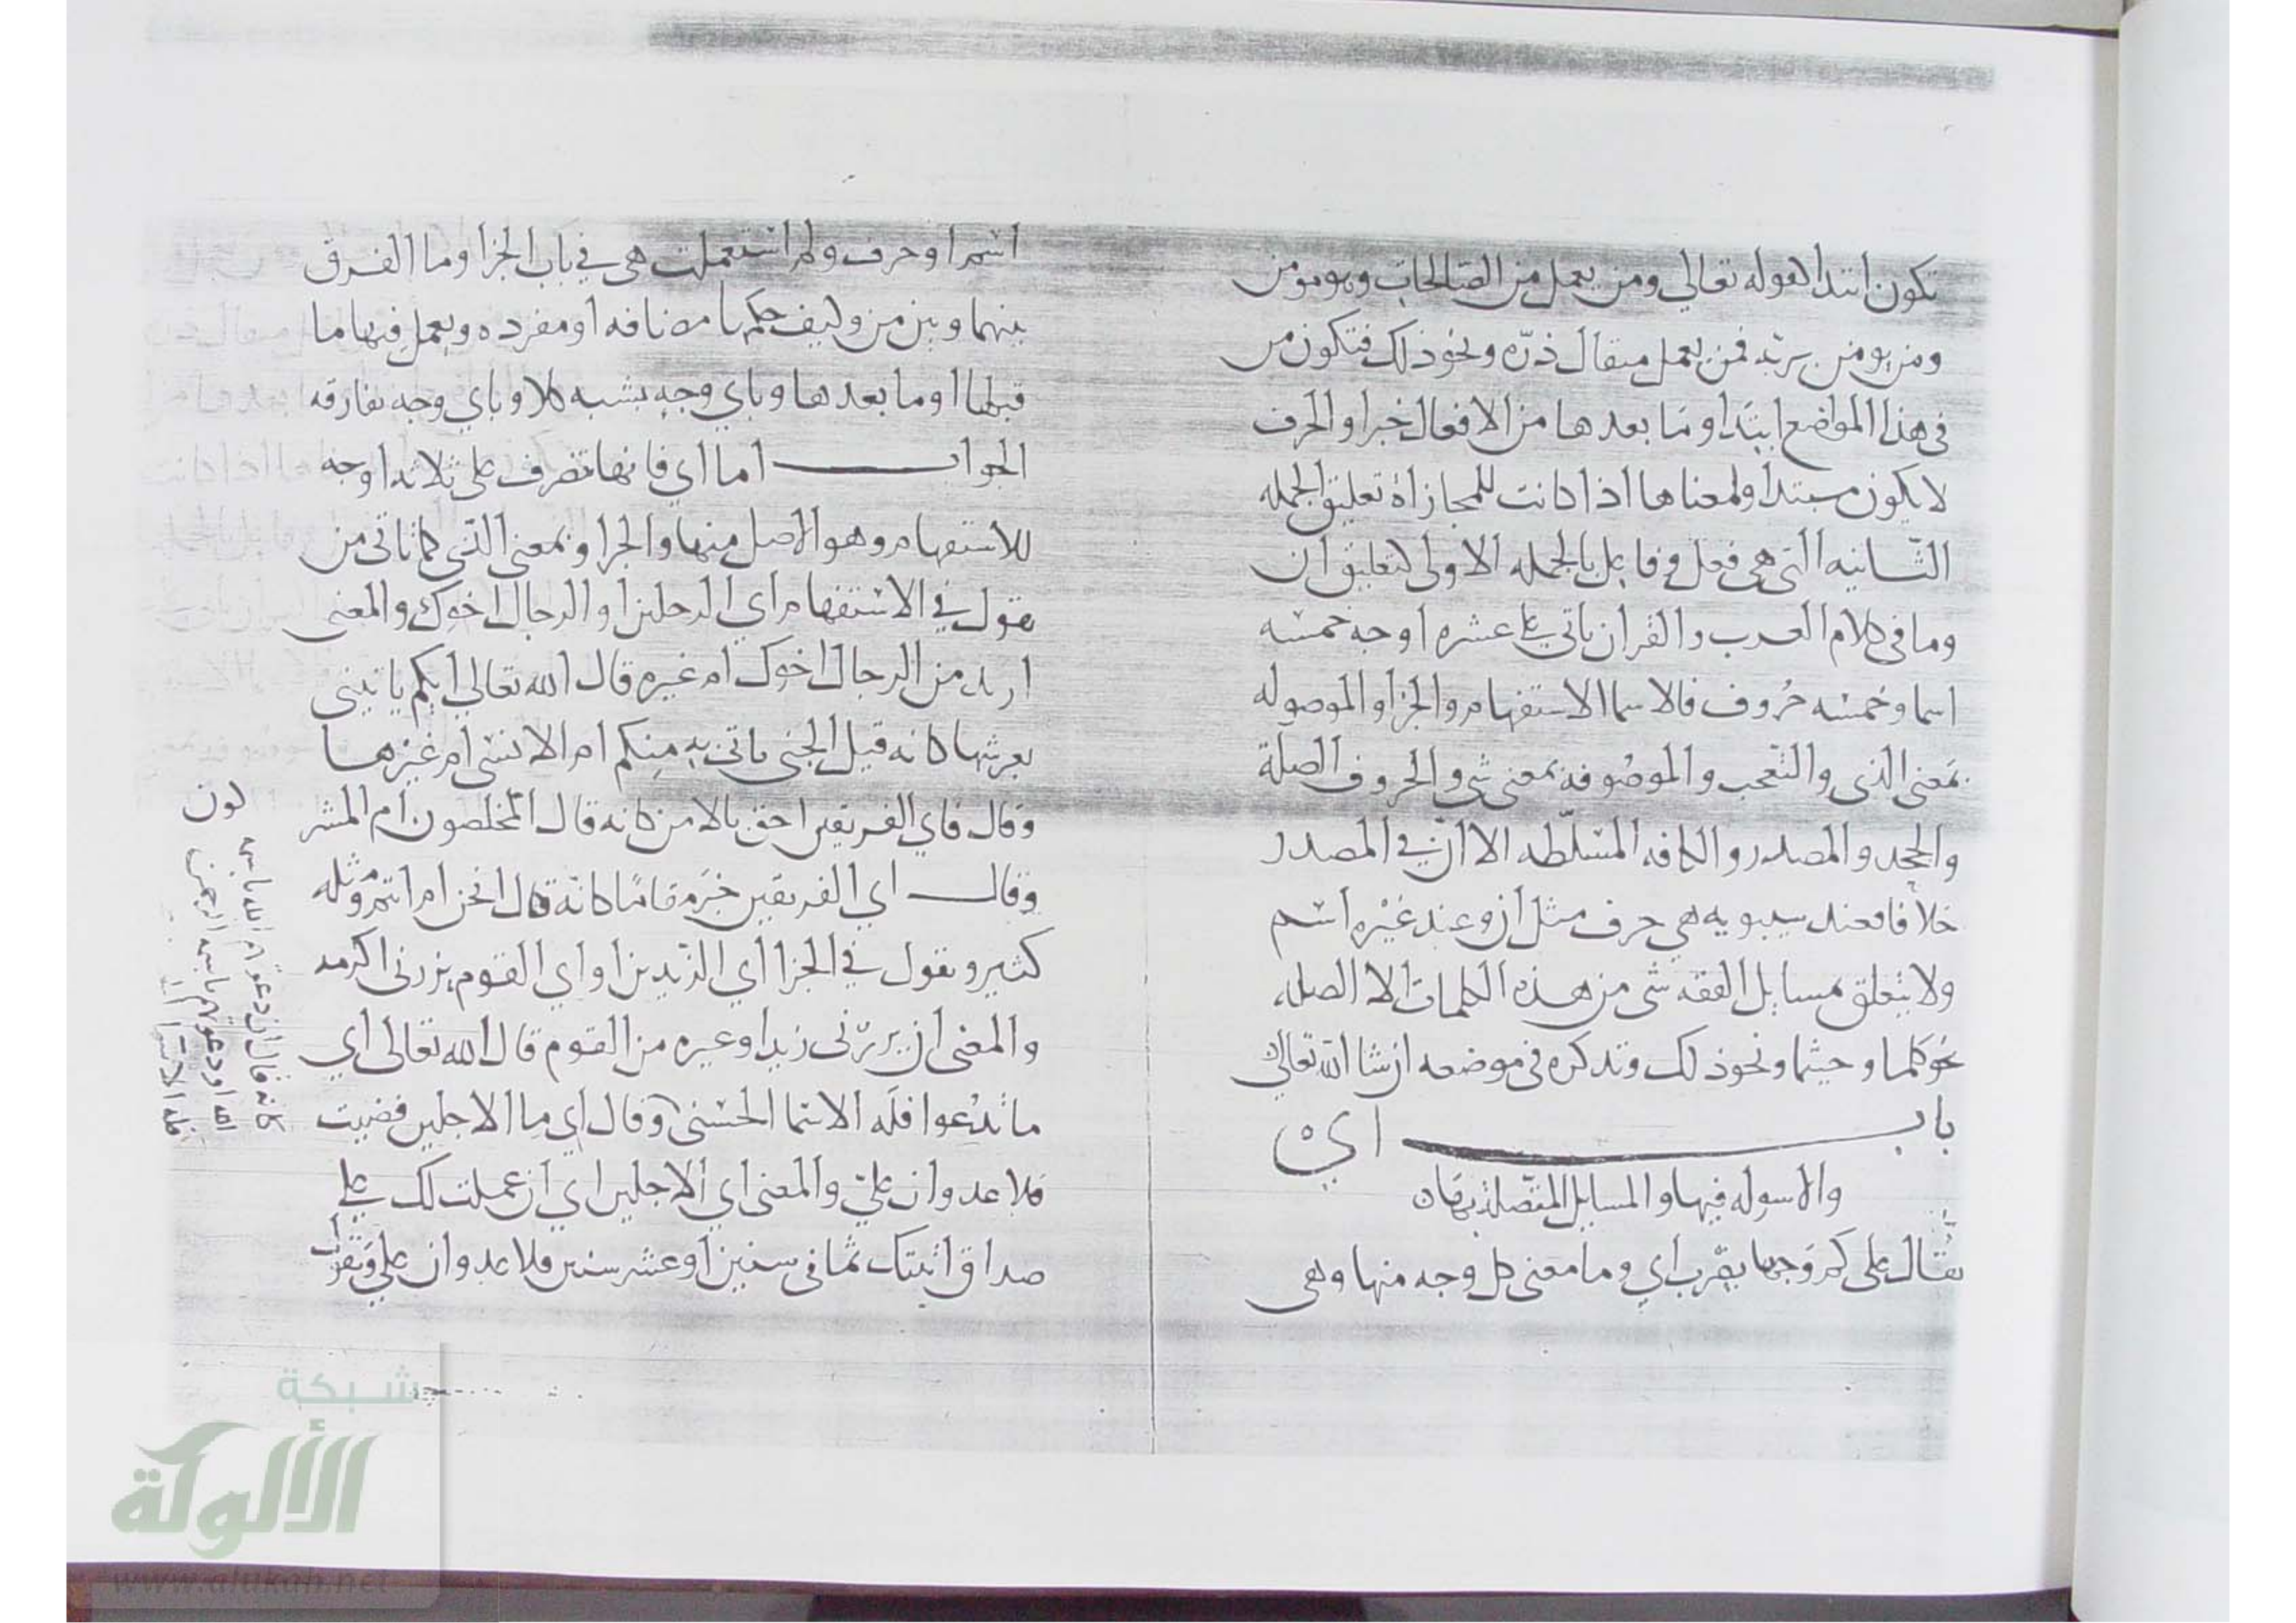 تكون ابتدا لقوله تعالي ومن يعمل من الصالحات وهو مومن
ومن يومن بربه فمن يعمل مثقال ذرّه ونحو ذلك فتكون من
في هذا المواضع ابتَدا ومَا بعدها من الافعال خبرا والحرف
لا يكون مبتدا ولمعناها اذا كانت للمجازاة تعليق الجمله
الثّانيه التى هى فعل وفاعل بالجمله الاولى كتعليق ان
وما في كلام العرب والقران ياتي على عشره اوجه خمسه
اسما وخمسه حُروف فالاسما الاستفهام والجزا والموصوله
بمَعنى الذى والتّعجب والموصُوفه بمعنى شي والحروف الصلة
والجحد والمصدر والكافه المسَلّطه الا انّ في المصدر
خلافا فعند سيبويه هي حرف مثل ان وعند غيْره اسْم
ولا يتعلق بمسايل الفقه شى من هذه الكلمات الا الصله
نحو كلما وحيثما ونحو ذلك وتذكره في موضعه ان شا الله تعالى
باب اي
والاسوله فيها والمسايل المتصلة بها
يُقال على كم وَجها يضْرب اي وما معنى كل وجه منها وهى
اسْم او حرف ولم استعملت هى في باب الجزا وما الفرق
بينها وبين من وكيف حكمها مضافه او مفرده ويعمل فيها ما
قبلها او ما بعدها وباي وجه يشبه كلا وباي وجه تفارقه
الجواب اما اي فانها تصرف على ثلاثه اوجه
للاستفهام وهو الاصل منها والجزا وبمعنى الذّى كما تاتى من
تقول في الاستفهام اى الرجلين او الرجال اخوك والمعنى
ازيد من الرجال اخوك ام غيره قال الله تعالى ايكم ياتينى
بعرشها كانه قيل الجنى ياتى به مِنكم ام الانسى ام غيرهما
وقال فاي الفريقين احق بالامن كانه قال المخلصون ام المشر
كون
وقال اي الفريقين خيرٌ مقامًا كانّه قال انحن ام انتم ومثله
كثير وتقول في الجزا اي الزّيدين او اي القوم يزرنى اكرمه
والمعنى ان يزرْنى زيد او غيره من القوم قال الله تعالى اي
ما تدْعوا فلَه الاسما الحسنى وقال اي ما الاجلين قضيت
فلا عدوان عليّ والمعنى اي الاجلين اي ان عملت لك على
صداق ابنتك ثمانى سنين او عشر سنين فلا عدوان علي وتقول
كانه قال ان دعوتم الله باسم
الله او دعوتم باسم الرحمن
فله الاسما
شبكة
الألوكة
www.alukah.net